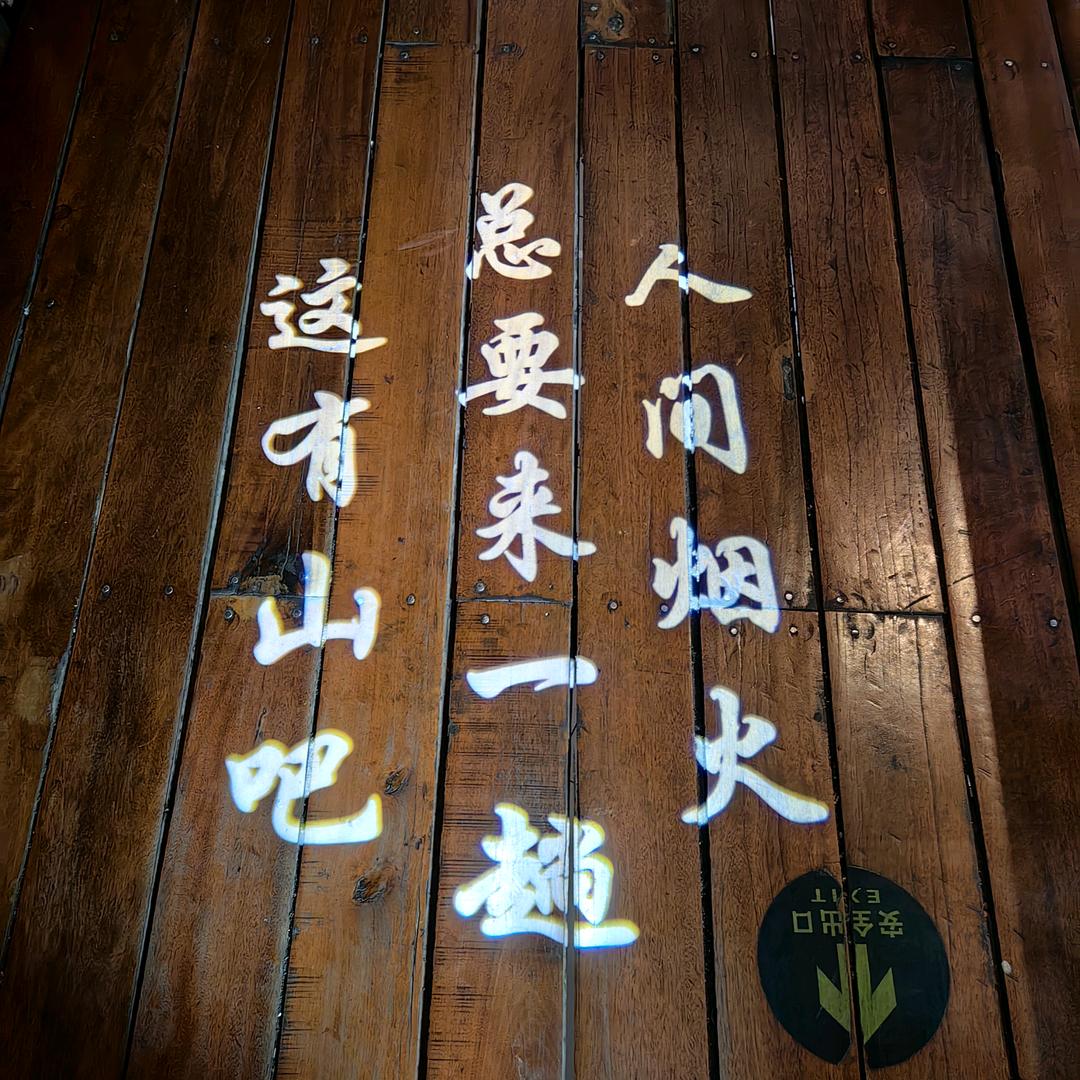 人间烟火
总要来一趟
这有山吧
安全出口
EXIT